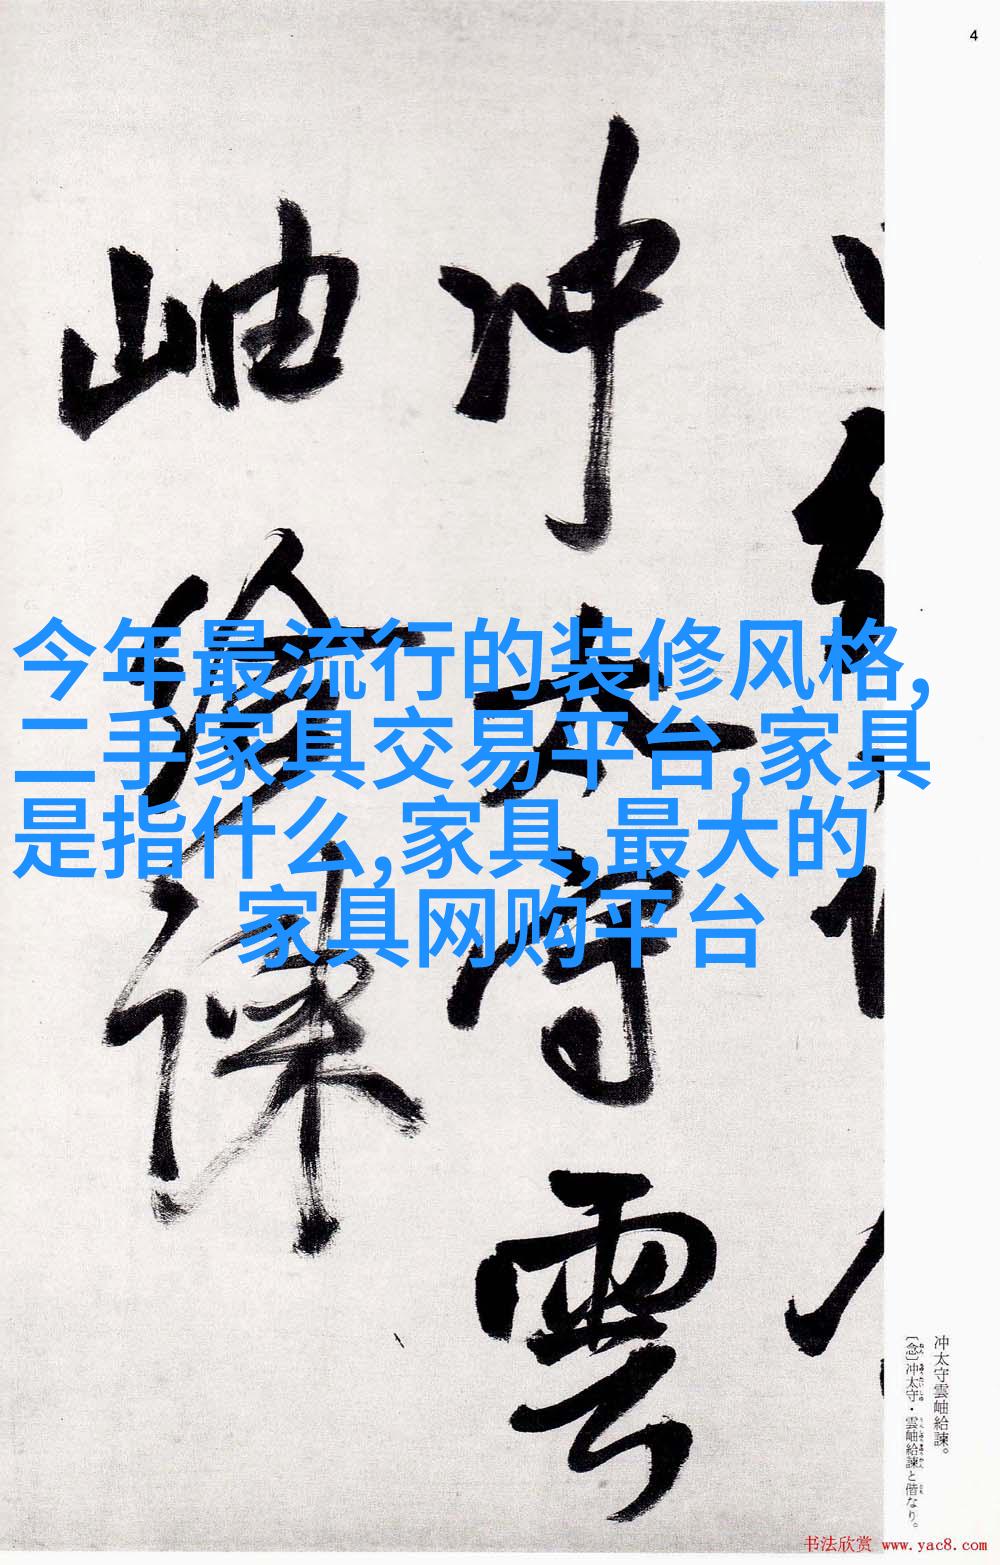 4
冲太守雲
岫給諫
今年最流行的装修风格,
二手家具交易平台,家具
是指什么,家具,最大的
家具网购平台
冲太守雲岫給諫。
〔念〕冲太守・雲岫給諫と偕なり。
书法欣赏 www.yac8.com